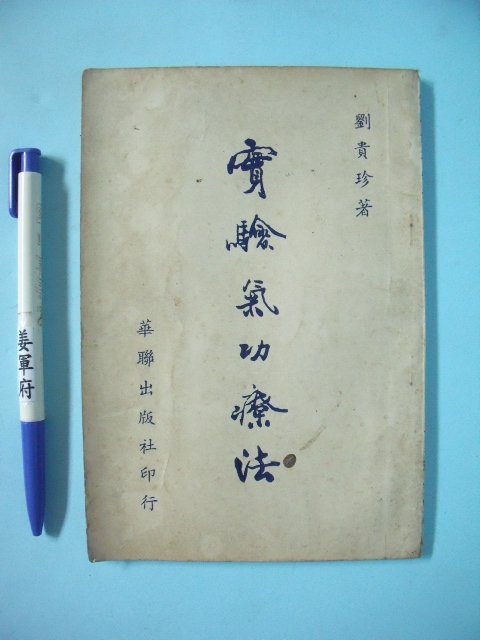 劉貴珍著
實驗氣功療法
華聯出版社印行
姜軍府